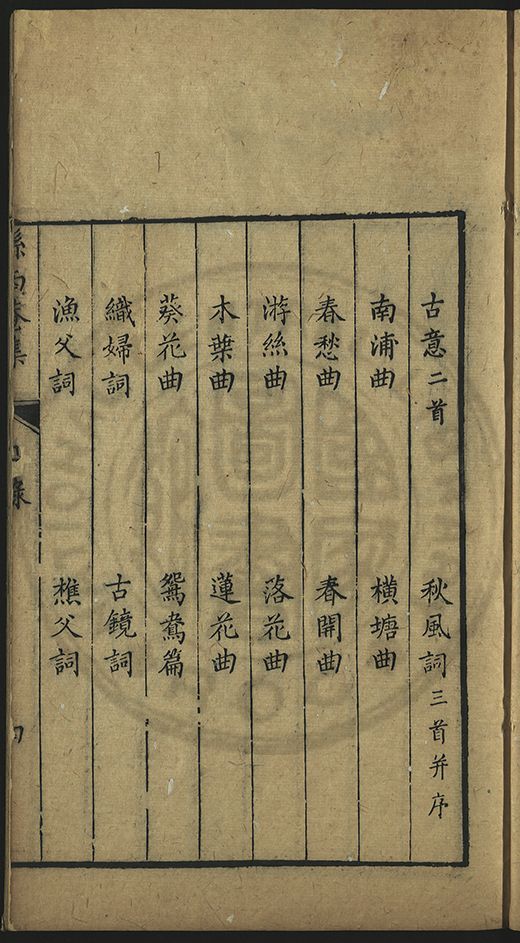 古意二首 秋風詞三首并序
南浦曲 橫塘曲
春愁曲 春開曲
游絲曲 落花曲
木葉曲 蓮花曲
葵花曲 鴛鴦篇
織婦詞 古鏡詞
漁父詞 樵父詞